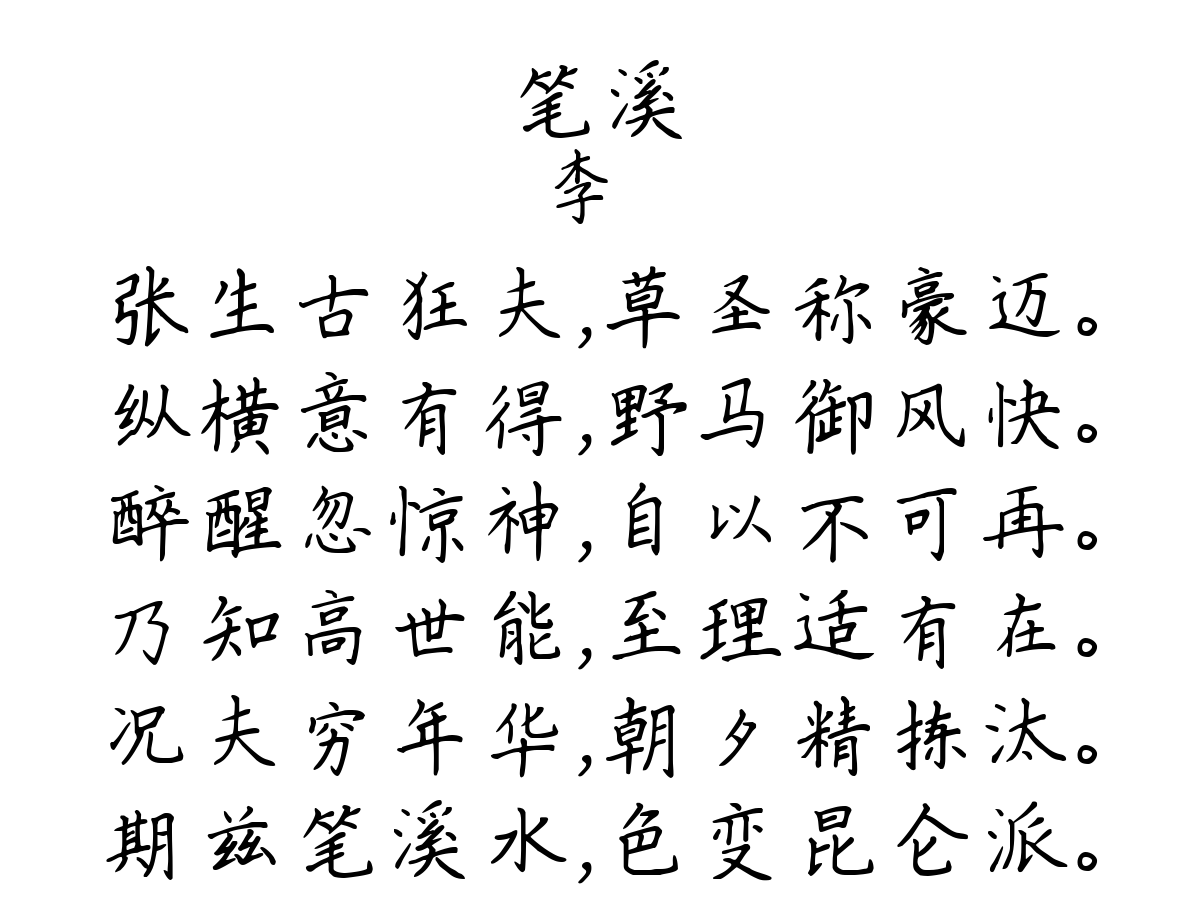 笔溪
李
张生古狂夫,草圣称豪迈。
纵横意有得,野马御风快。
醉醒忽惊神,自以不可再。
乃知高世能,至理适有在。
况夫穷年华,朝夕精拣汰。
期兹笔溪水,色变昆仑派。